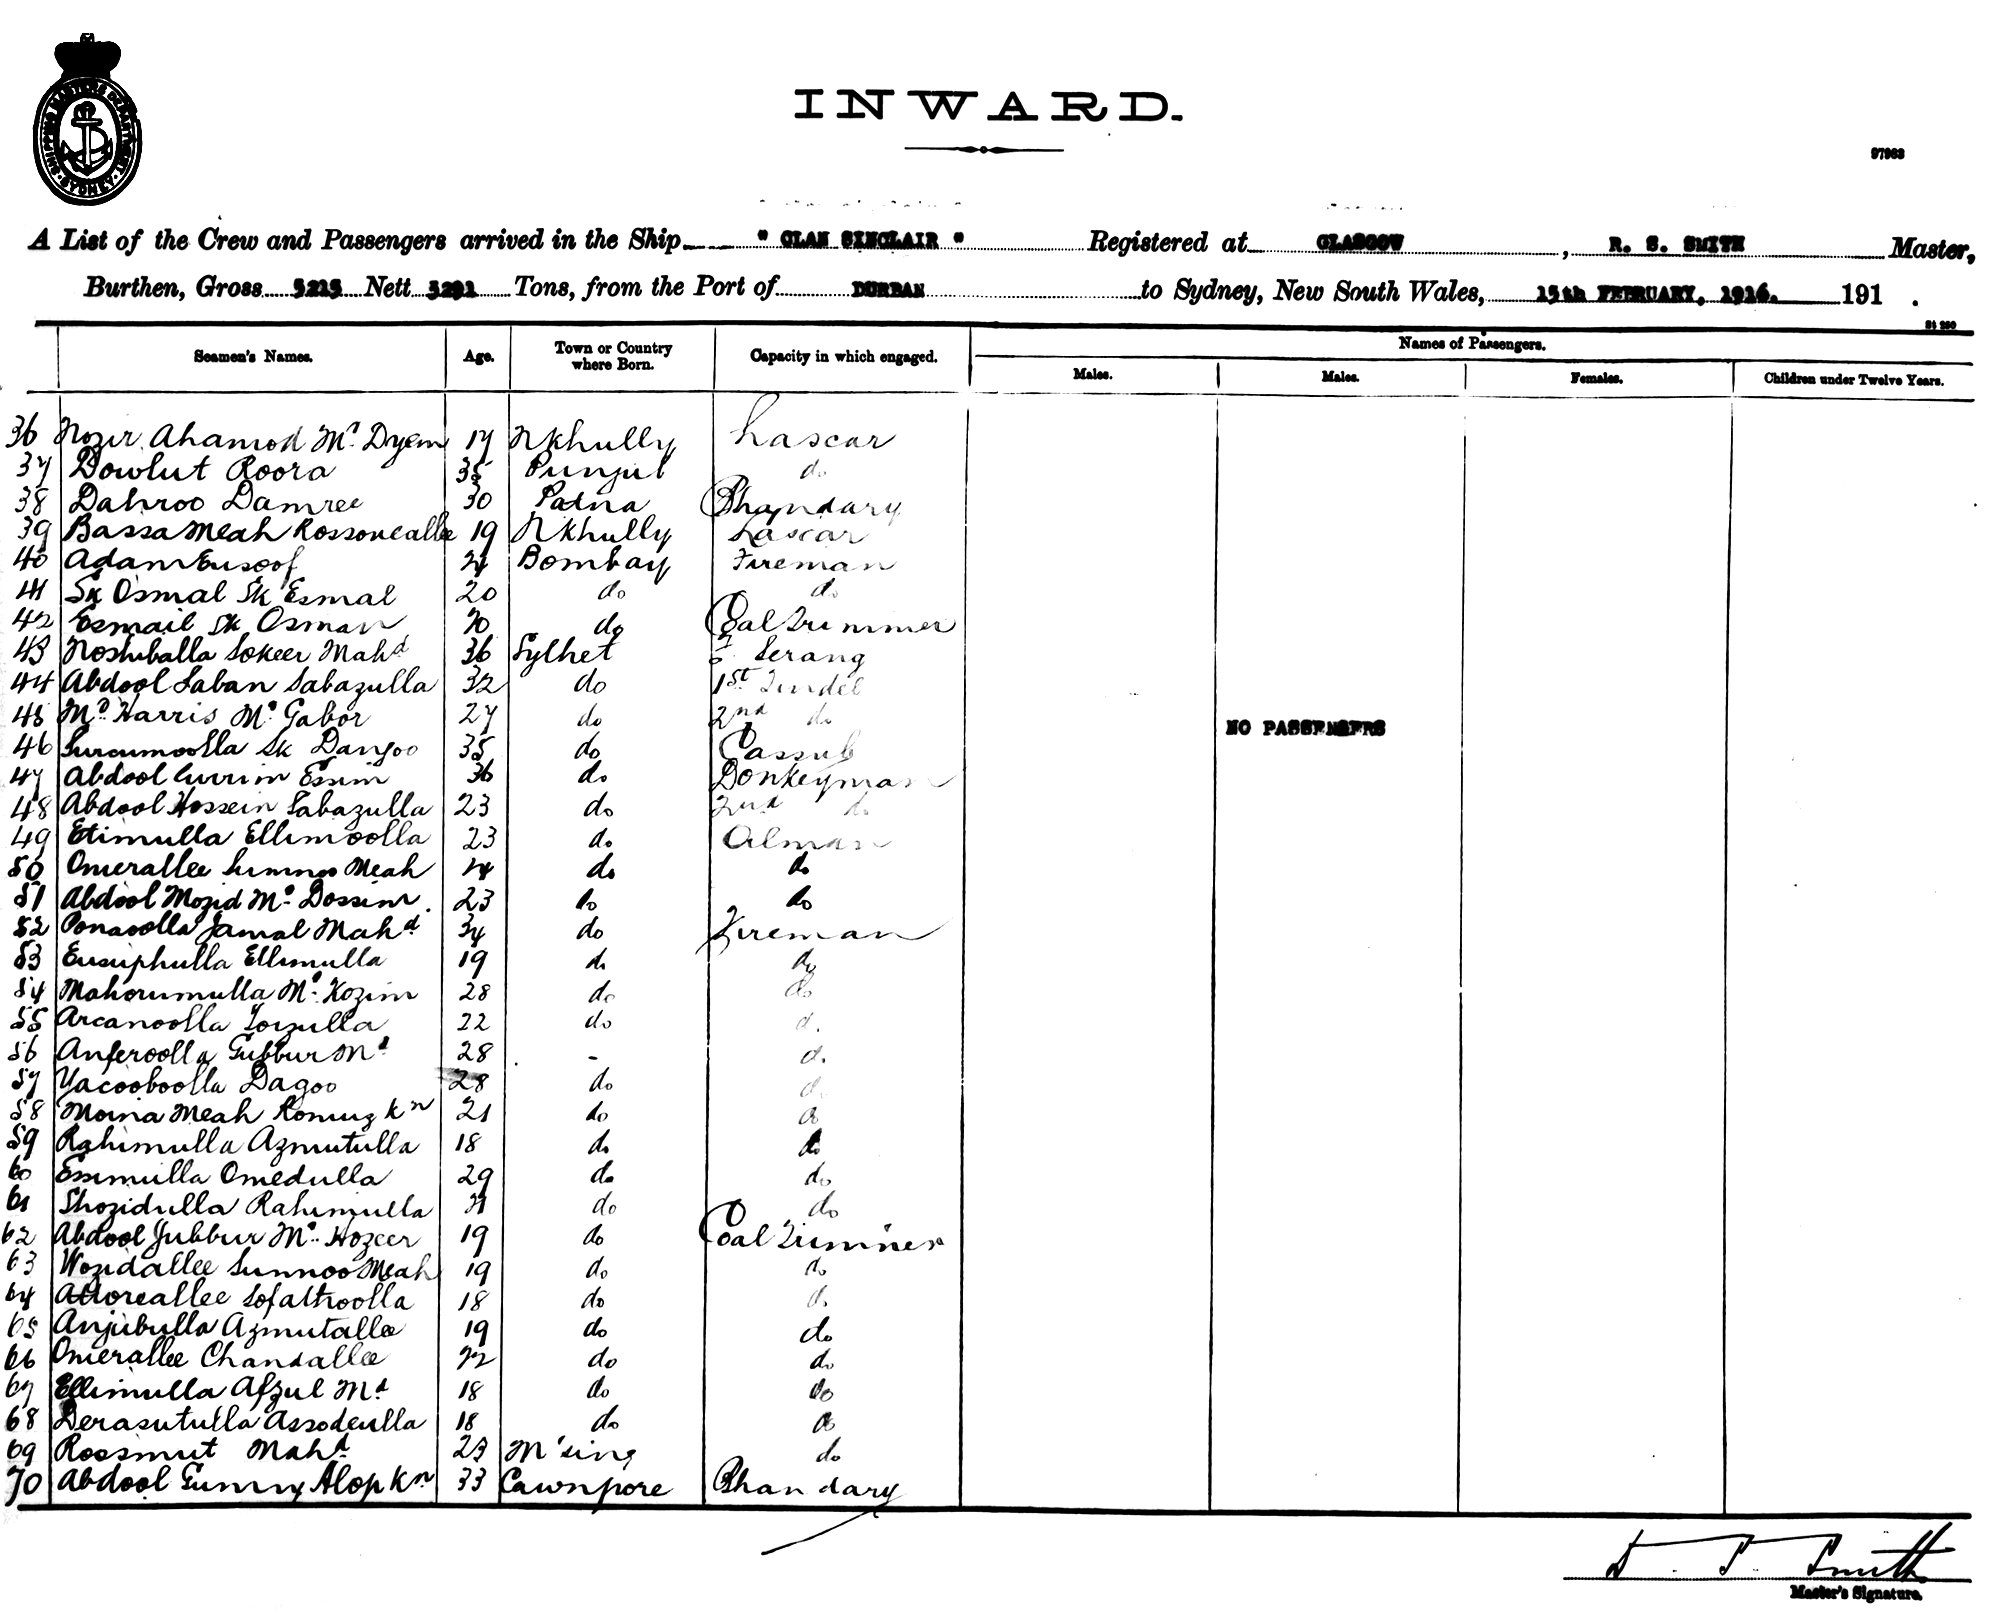 SHIPPING MASTERS DEPARTMENT SYDNEY
INWARD.
97963
A List of the Crew and Passengers arrived in the Ship " CLAN SINCLAIR " Registered at GLASGOW , R. S. SMITH Master,
Burthen, Gross 5215 Nett 3291 Tons, from the Port of DURBAN to Sydney, New South Wales, 15th FEBRUARY, 1916. 191 .
Seamen's Names. Age. Town or Country where Born. Capacity in which engaged. Names of Passengers.
Males. Males. Females. Children under Twelve Years.
36 Nozir Ahamod Md. Dyem 17 Nkhully Lascar
37 Dowlut Roora 35 Punjub do
38 Dahroo Damree 30 Patna Bhandary
39 Bassa Meah Rossoneallee 19 Nkhully Lascar
40 Adam Eusoof Bombay Fireman
41 Sk Osmal Sk Esmal 20 do do
42 Esmail Sk Osman 20 do Coal Trimmer
43 Noshiballa Sokeer Mahd 36 Sylhet Serang
44 Abdool Saban Sabazulla 32 do 1st Tindel
45 Md. Harris Md. Gabor 27 do 2nd do
46 Surcumoolla Sk Dangoo 35 do Cassub
47 Abdool Currim Essim 36 do Donkeyman
48 Abdool Hossein Sabazulla 23 do 2nd do
49 Etimulla Ellimoolla 23 do Oilman
50 Omerallee Sunnoo Meah 24 do do
51 Abdool Mozid Md. Dossim. 23 do do
52 Ponaoolla Jamal Mahd 34 do Fireman
53 Eusuphulla Ellimulla 19 do do
54 Mahorumulla Md. Kozim 28 do do
55 Arcanoolla Torzulla 22 do do
56 Anferoolla Gubbur Md 28 - do
57 Yacooboolla Dagoo 28 do do
58 Moina Meah Romuz Kn 21 do do
59 Rahimulla Azmutulla 18 do do
60 Essimulla Omedulla 29 do do
61 Shozidulla Rahimulla 21 do do
62 Abdool Jubbur Md. Hozeer 19 do Coal Trimmer
63 Wozidallee Sunnoo Meah 19 do do
64 Attoreallee Sofathoolla 18 do do
65 Anjubulla Azmutallee 19 do do
66 Omerallee Chandallee 22 do do
67 Ellimulla Afzul Md 18 do do
68 Derasutulla Assodeulla 18 do do
69 Rossmut Mahd 23 M'sing do
70 Abdool Gunny Alop Kn 33 Cawnpore Bhandary
NO PASSENGERS
Smith
Master's Signature.